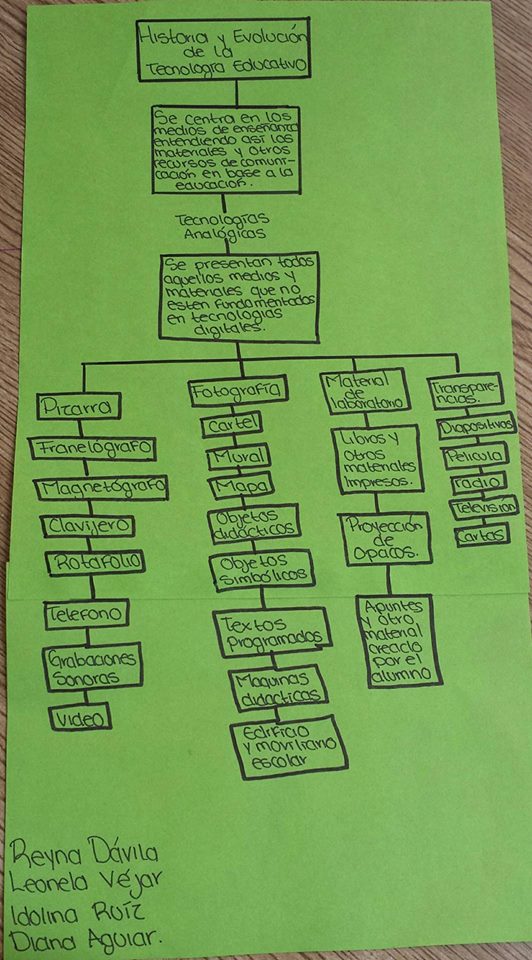 Historia y Evolución
de la
Tecnología Educativo
Se centra en los
medios de enseñanza
entendiendo así los
materiales y otros
recursos de comuni-
cación en base a la
educación.
Tecnologías
Analógicas
Se presentan todos
aquellos medios y
materiales que no
esten fundamentados
en tecnologías
digitales.
Pizarra
Franelógrafo
Magnetógrafo
Clavijero
Rotafolio
Telefono
Grabaciones
sonoras
Video
Fotografía
Cartel
Mural
Mapa
Objetos
didácticos
Objetos
simbólicos
Textos
programados
Maquinas
didacticas
Edificio
y moviliario
escolar
Material
de
laboratorio
Libros y
otros
materiales
Impresos.
Proyección
de
Opacos.
Apuntes
y otro
material
creado
por el
alumno
Transpare-
ncias.
Diapositivas
Pelicula
radio
Television
Cartas
Reyna Dávila
Leonela Véjar
Idolina Ruíz
Diana Aguiar.